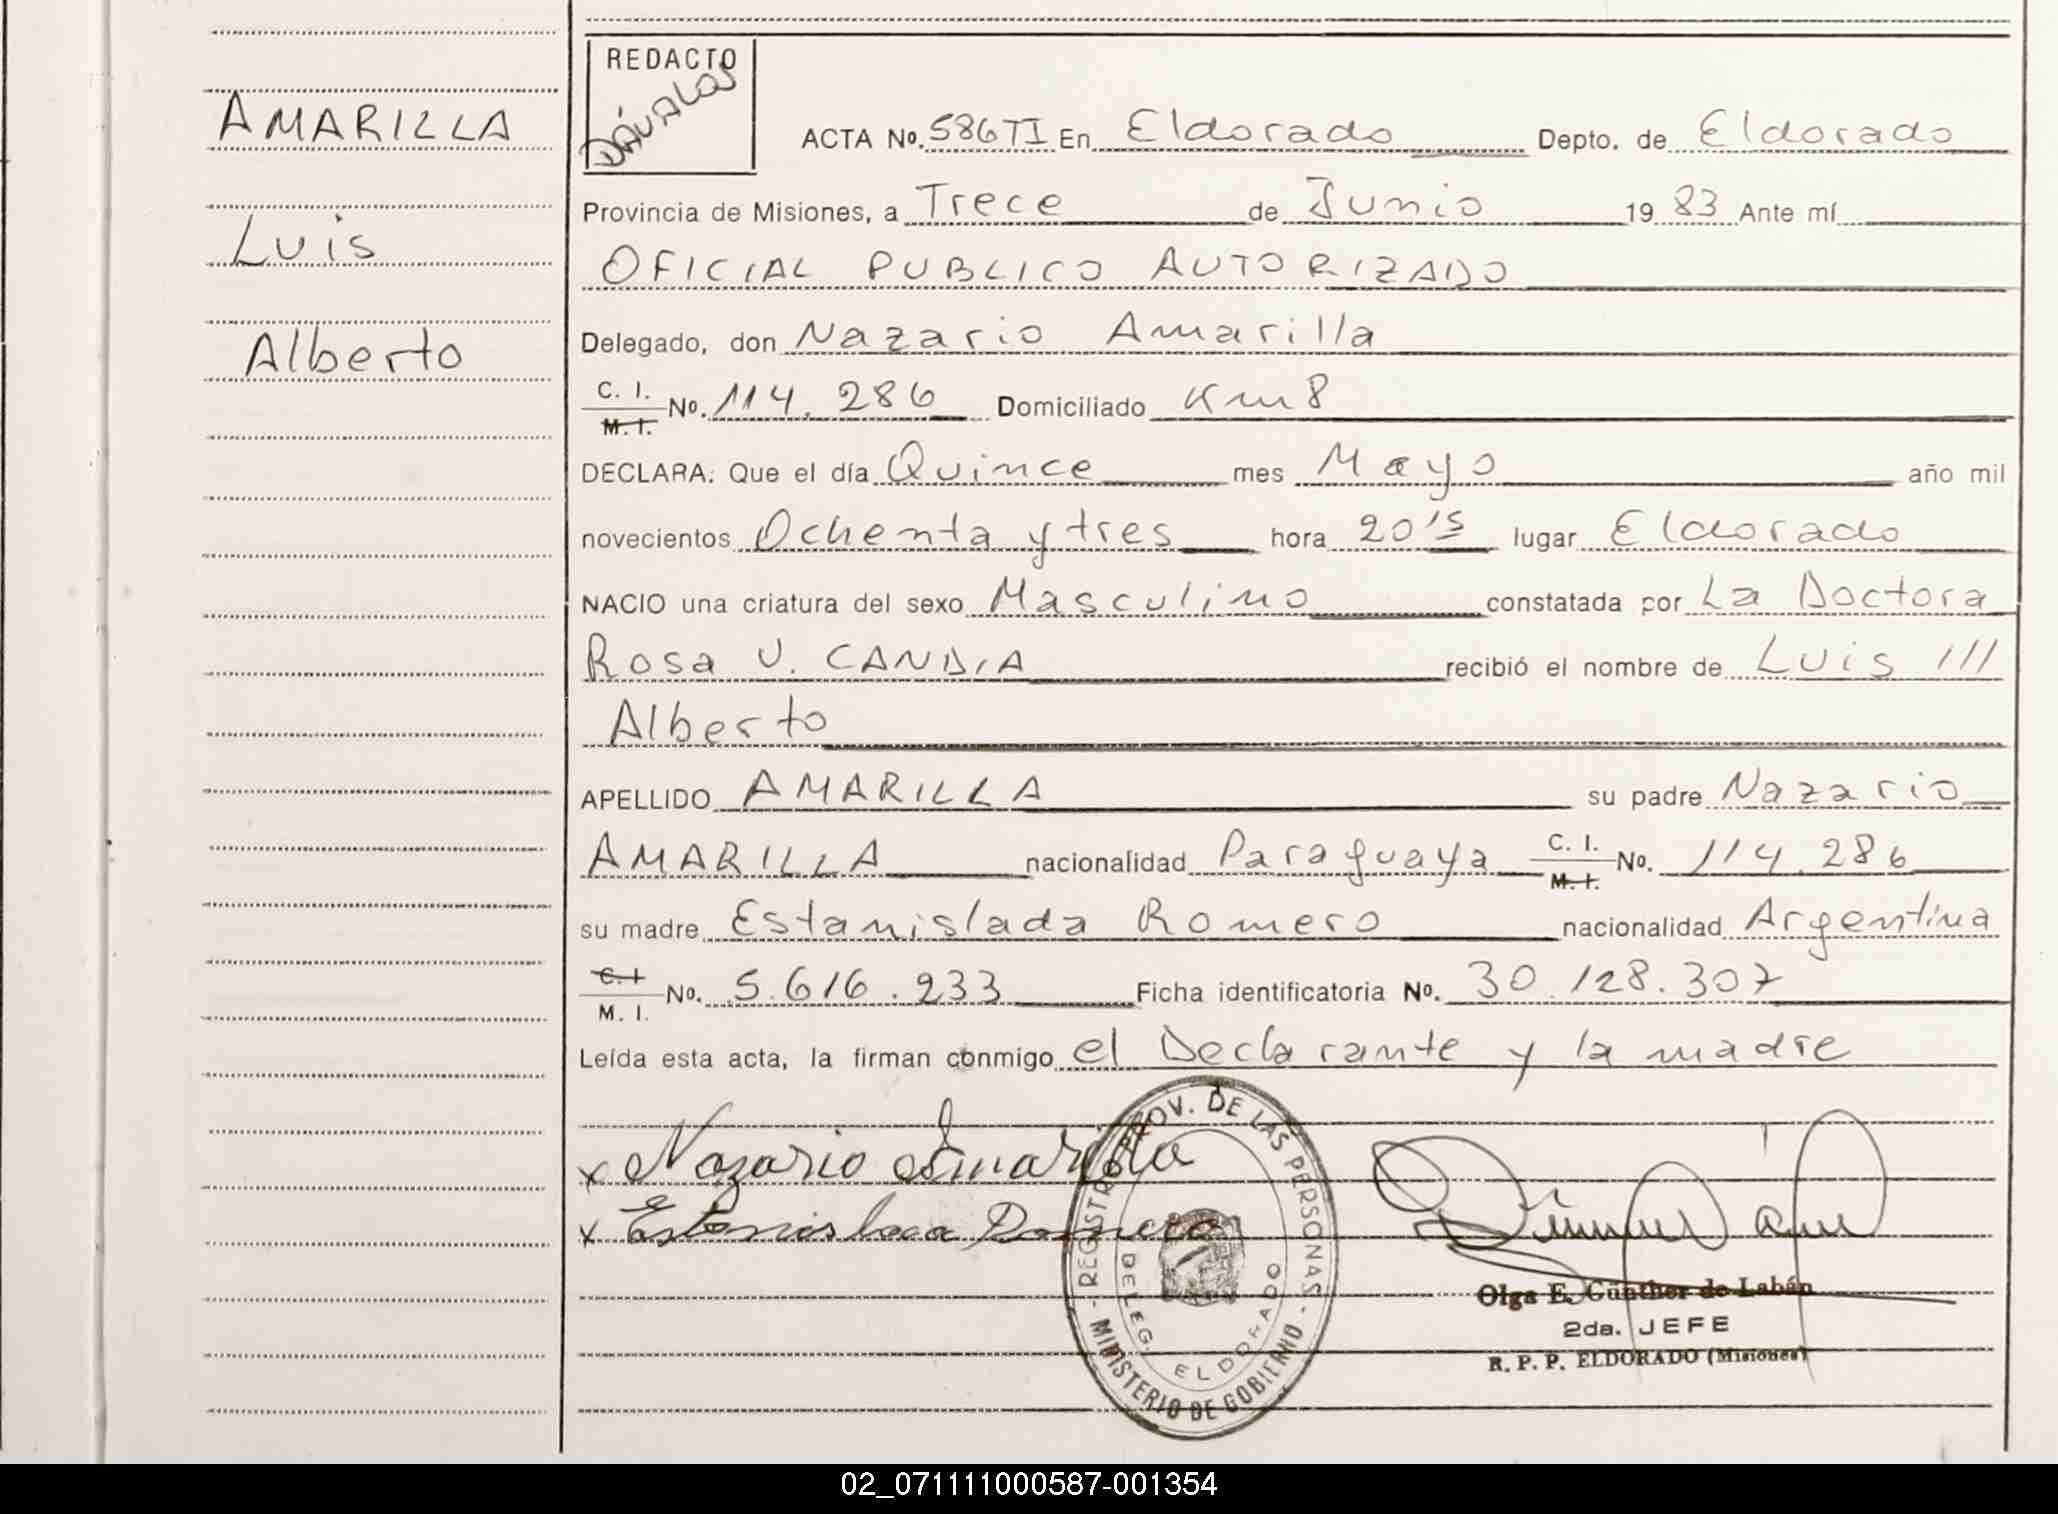 AMARILLA
Luis
Alberto
REDACTO
DÁVALOS
ACTA Nº. 586TI En Eldorado Depto. de Eldorado
Provincia de Misiones, a Trece de Junio 19 83 Ante mí
OFICIAL PUBLICO AUTORIZADO
Delegado, don Nazario Amarilla
C. I.
M. I.
Nº. 114.286 Domiciliado Km 8
DECLARA: Que el día Quince mes Mayo año mil
novecientos Ochenta y tres hora 20'15 lugar Eldorado
NACIO una criatura del sexo Masculino constatada por La Doctora
Rosa V. CANDIA recibió el nombre de Luis ///
Alberto
APELLIDO AMARILLA su padre Nazario
AMARILLA nacionalidad Paraguaya C. I. Nº. 114.286
M. I.
su madre Estanislada Romero nacionalidad Argentina
C. I
M. I.
Nº. 5.616.233 Ficha identificatoria Nº. 30.128.307
Leída esta acta, la firman conmigo el Declarante y la madre
x Nazario Amarilla
x Estanislaca Romero
REGISTRO PROV. DE LAS PERSONAS
MINISTERIO DE GOBIERNO
DELEG. ELDORADO
Olga E. Günther de Labán
2da. JEFE
R. P. P. ELDORADO (Misiones)
02_071111000587-001354